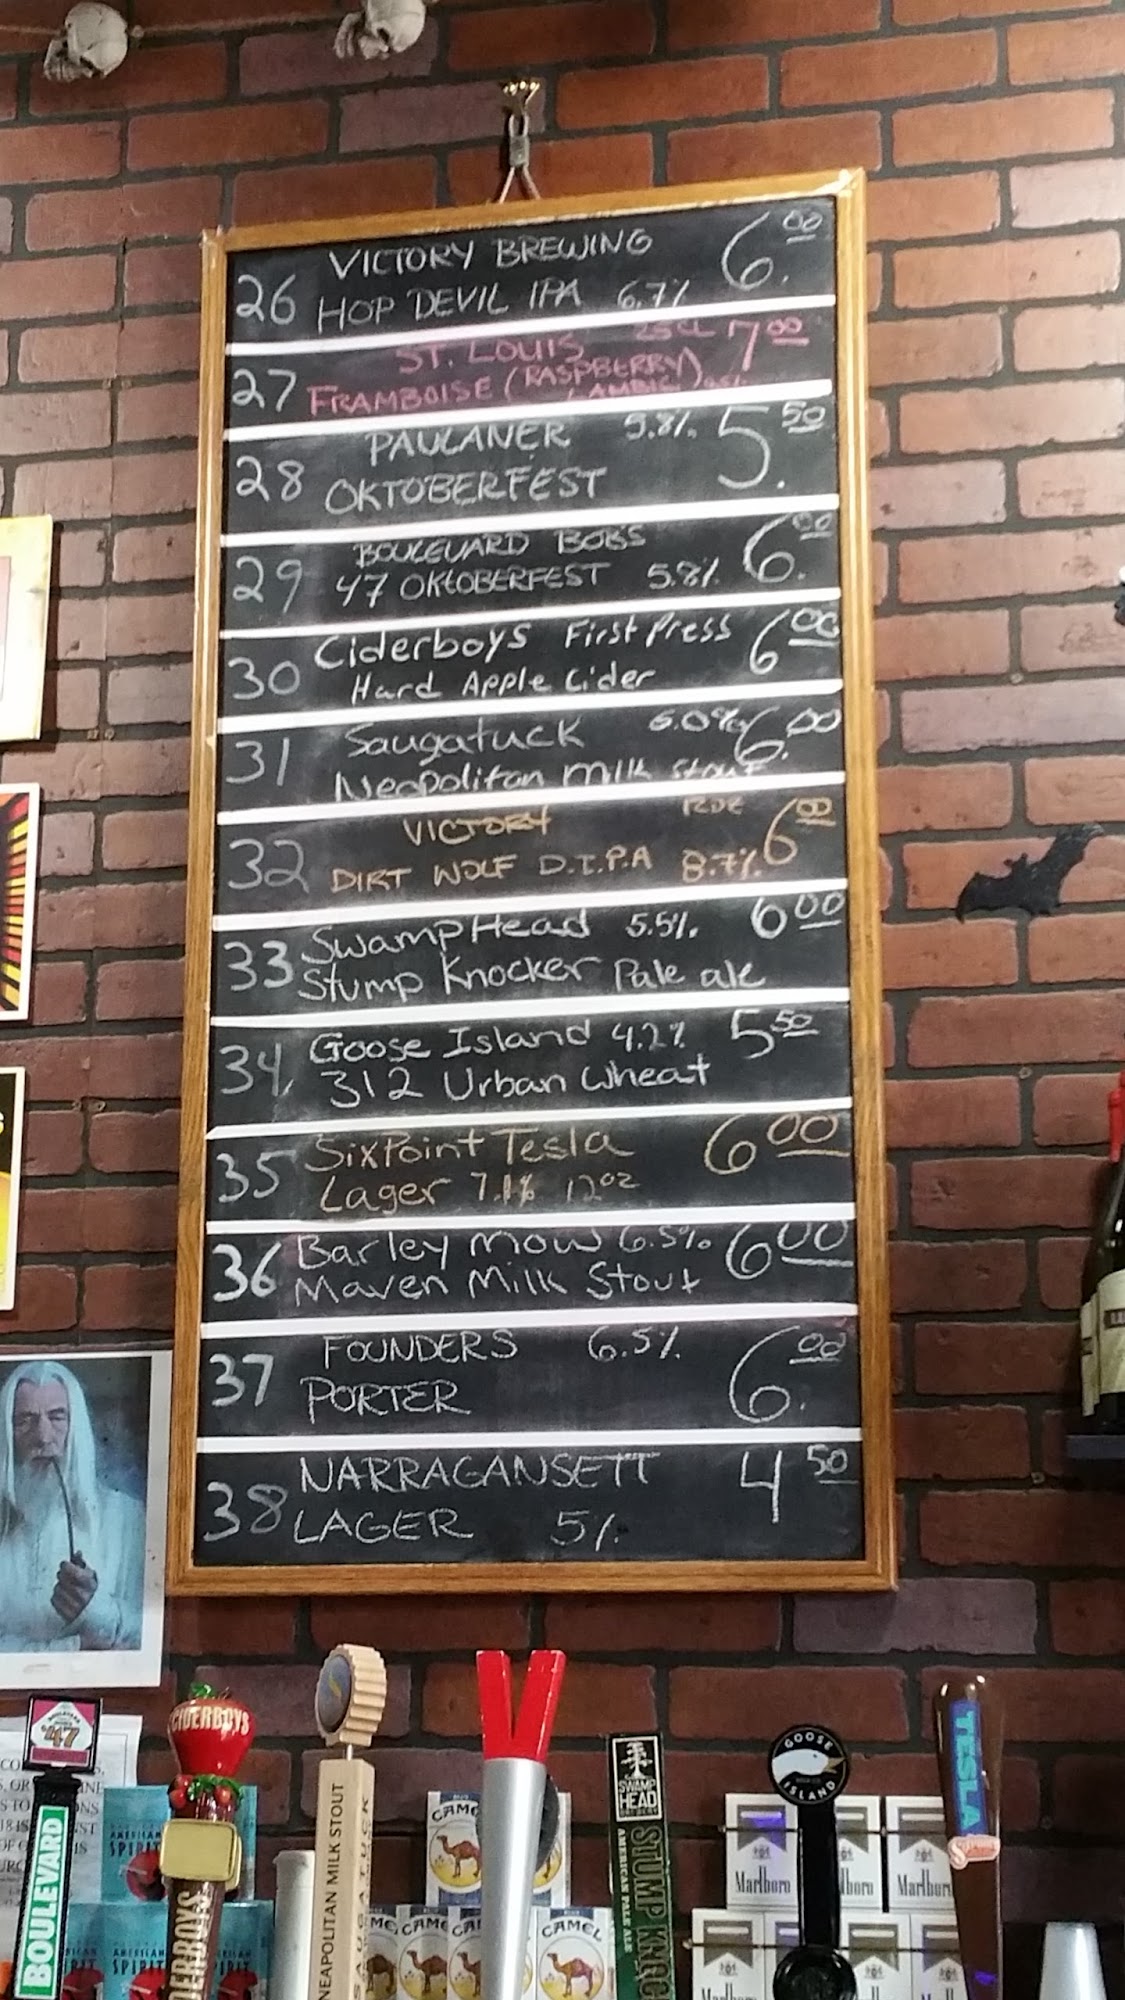 26 VICTORY BREWING 6.00
HOP DEVIL IPA 6.7%
27 ST. LOUIS 25CL 7.00
FRAMBOISE (RASPBERRY
LAMBIC)
28 PAULANER 5.8% 5.50
OKTOBERFEST
29 BOULEVARD BOB'S 6.00
47 OKTOBERFEST 5.8%
30 Ciderboys First Press 6.00
Hard Apple Cider
31 Saugatuck 6.0% 6.00
Neopolitan Milk Stout
32 VICTORY 6.00
DIRT WOLF D.I.P.A 8.7%
33 SwampHead 5.5% 6.00
Stump Knocker Pale ale
34 Goose Island 4.2% 5.50
312 Urban Wheat
35 SixPoint Tesla 6.00
Lager 7.1% 12oz
36 Barley Mow 6.5% 6.00
Maven Milk Stout
37 FOUNDERS 6.5% 6.00
PORTER
38 NARRAGANSETT 4.50
LAGER 5%
47
BOULEVARD
CIDERBOYS
NEAPOLITAN MILK STOUT
SAUGATUCK
SWAMP
HEAD
AMERICAN PALE ALE
GOOSE
ISLAND
TESLA
AMERICAN
SPIRIT
CAMEL
CAMEL
Marlboro
Marlboro